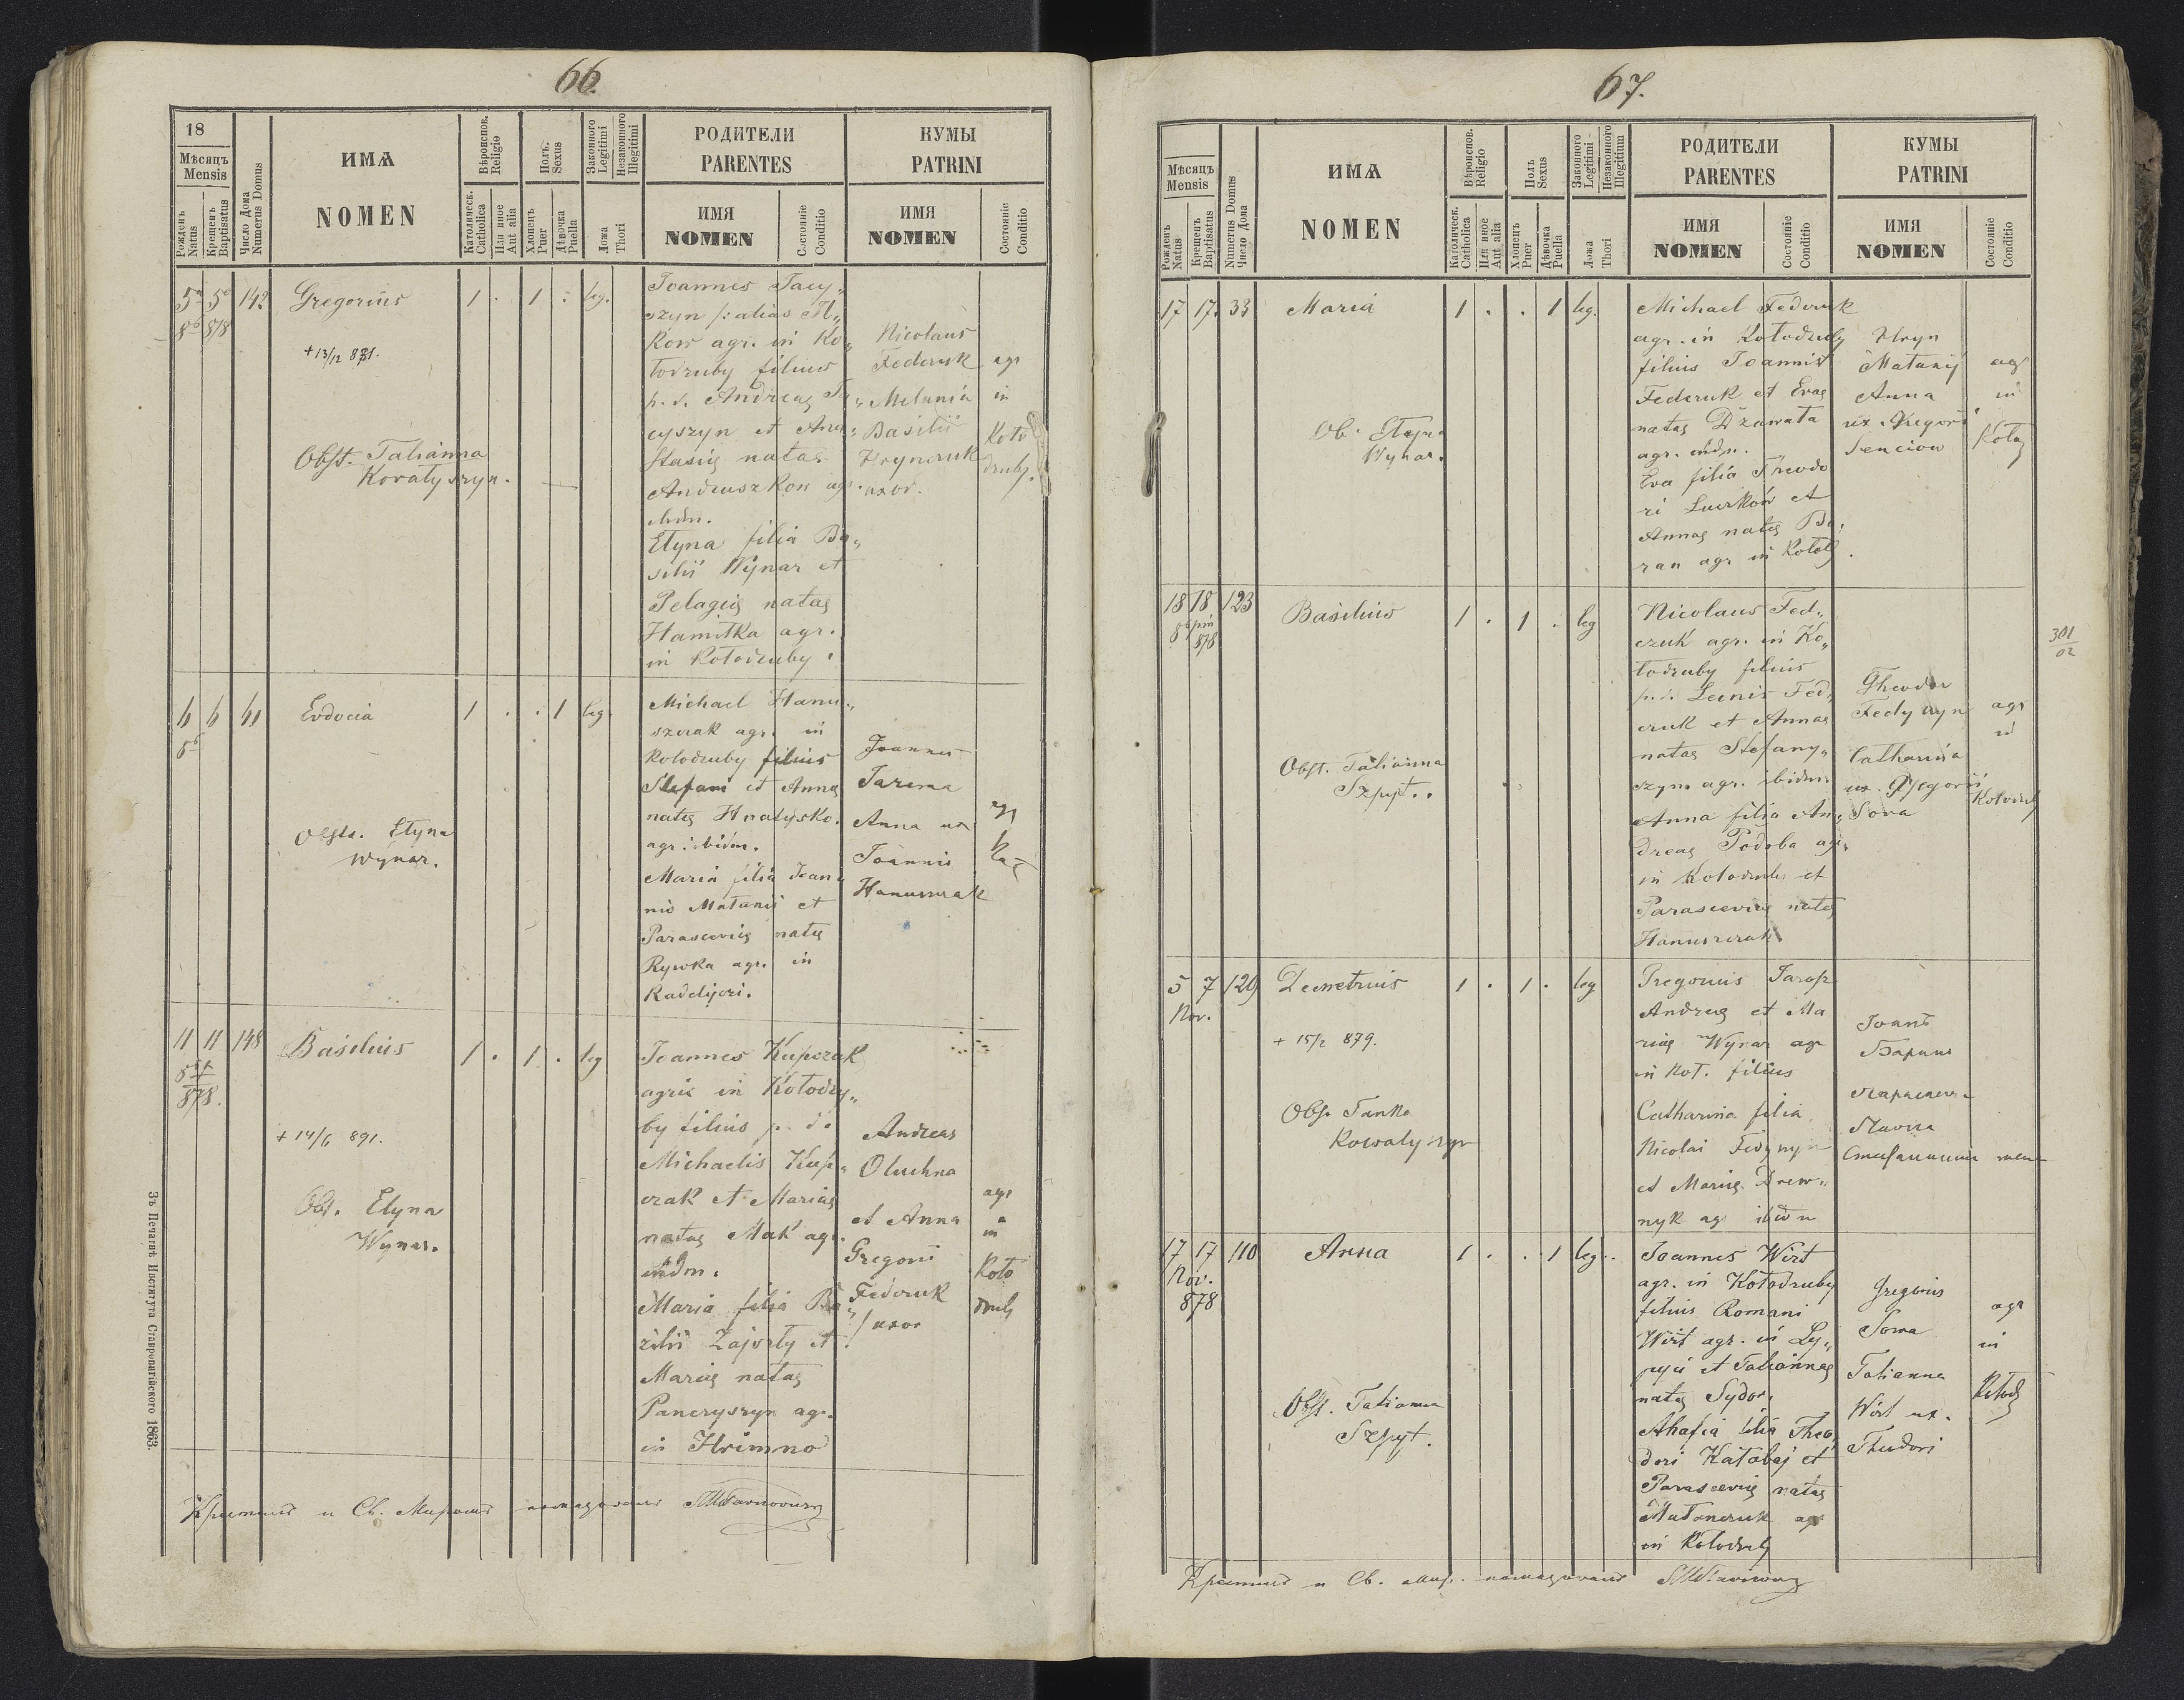 66.
18
Мѣсяцъ
Mensis
Рожденъ
Natus
Крещенъ
Baptisatus
Число Дома
Numerus Domus
ИМѦ
NOMEN
Вѣроиспов.
Religio
Католическ.
Catholica
Или иное
Aut alia
Полъ.
Sexus
Хлопецъ
Puer
Дѣвочка
Puella
Законного
Legitimi
Незаконного
Illegitimi
Ложа
Thori
РОДИТЕЛИ
PARENTES
ИМЯ
NOMEN
Состояніе
Conditio
КУМЫ
PATRINI
ИМЯ
NOMEN
Состояніе
Conditio
5 5 142 Gregorius 1 . 1 . leg.
878
+ 13/12 881.
Obst. Tatianna
Kowalyszyn.
Joannes Jacy„
szyn /: alias
Kow agr. in Ko„
łodruby filius
p. d. Andreae
cyszyn et Ana„
stasiae natae
Andruszkow agr.
ibidm.
Elyna filia Ba„
silii Wynar et
Pelagiae natae
Hamitka agr.
in Kołodruby.
Nicolaus
Federuk
Melania
Basilii
Hrynczuk
uxor.
agr
in
Koło
druby.
6 6 61 Evdocia 1 . . 1 leg.
Obst. Elyna
Wynar.
Michael Hanu„
szczak agr. in
Kolodruby filius
Stefani et Annae
natae Hnatysko.
agr. ibidm.
Maria filia Joan
nis Matanij et
Parasceviae natae
Rywka agr. in
Radelyci.
Joannes
Jarema
Anna ux
Joannis
Hanuszczak
agr
11 11 148 Basilius 1 . 1 . leg
878.
+ 14/6 891.
Obst. Elyna
Wynar.
Joannes Kupczak
agric in Kołodru„
by filius p. d.
Michaelis Kup„
czak et Mariae
natae Mak agr.
ibidm.
Maria filia Ba„
zilii Zajorły et
Mariae natae
Pancryszyn agr.
in Hrimno
Andreas
Oluchna
et Anna
Gregorii
Federuk
/ uxor
agr
in
Koło
druby
Крестилъ и Св. Миромъ помазовалъ
Зъ Печатнѣ Института Ставропигійского 1863.
67.
Мѣсяцъ
Mensis
Рожденъ
Natus
Крещенъ
Baptisatus
Numerus Domus
Число Дома
ИМѦ
NOMEN
Вѣроиспов.
Religio
Католическ.
Catholica
Или иное
Aut alia
Полъ
Sexus
Хлопецъ
Puer
Дѣвочка
Puella
Законного
Legitimi
Незаконного
Illegitimi
Ложа
Thori
РОДИТЕЛИ
PARENTES
ИМЯ
NOMEN
Состояніе
Conditio
КУМЫ
PATRINI
ИМЯ
NOMEN
Состояніе
Conditio
17 17. 33 Maria 1 . . 1 leg.
Ob. Elyna
Wynar.
Michael Federuk
agr. in Kołodruby
filius Joannis
Federuk et Evae
natae Dżawała
agr. ibidm.
Eva filia Theodo
ri Lućków et
Annae natae Ba.
ran agr in Kołod.
Hryn
Matanij
Anna
ux Gregorii
Senciow
agr
in
18 18 123 Basilius 1 . 1 . leg
878
Obst. Tatianna
Szpyt..
Nicolaus Fed„
czuk agr. in Ko„
łodruby filius
p. d. Fed„
czuk et Annae
natae Stefany„
szyn agr. ibidm.
Anna filia An„
dreae Podoba agr.
in Kolodrub et
Parasceviae natae
Hanuszczak
Theodor
Fedyszyn
Catharina
ux. Gregorii
Sova
agr
in
Kolodrub
301
02
5 7 129 Demetrius 1 . 1 . leg
Nov.
+ 15/2 879.
Obst Tanka
Kowalyszyn
Gregorius
Andreae et Ma
riae Wynar agr
in Koł. filius
Catharina filia
Nicolai Fedyszyn
et Mariae Drew„
nyk agr ibidm
Іоанъ
Баранъ
Параскева
Павла
Стефанишина жена
17 17 110 Anna 1 . . 1 leg..
Nov.
878
Obst. Tatianna
Szpyt.
Joannes Wirt
agr. in Kołodruby
filius Romani
Wirt agr. in
et Tatiannae
natae Sydor,
Ahafia filia Theo
dori Katabaj et
Parasceviae natae
Matonczuk agr
in Kolodrub
Gregorius
Sowa
Tatianna
Wirt ux.
Theodori
agr
in
Kołod
Крестилъ и Св. Мир. помазовалъ